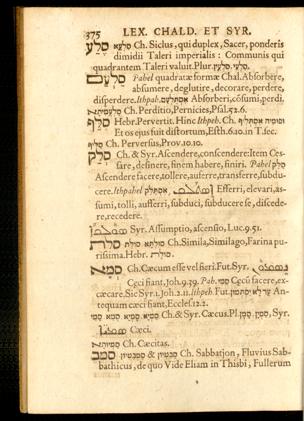 375 LEX. CHALD. ET SYR.
סלע סלעא Ch. Siclus, qui duplex, Sacer, ponderis
dimidii Taleri imperialis : Communis qui
quadrantem Taleri valuit. Plur. סלעין, סלעי
סלעם Pahel quadratæ formæ Chal. Absorbere,
absumere, deglutire, decorare, perdere,
disperdere. Ithpah. Absorberi, cōsumi, perdi.
Ch. Perditio, Pernicies, Psal. 52. 6.
סלף Hebr. Pervertit. Hinc Ithpeh. Ch.
Et os ejus fuit distortum, Esth. 6. 10. in T. sec.
Ch. Perversus, Prov. 10. 10.
סלק Ch. & Syr. Ascendere, conscendere: Item Ces-
sare, desinere, finem habere, finiri. Pahel סלק
Ascendere facere, tollere, auferre, transferre, subdu-
cere. Ithpahel אסתלק Efferri, elevari, as-
sumi, tolli, aufferri, subduci, subducere se, discede-
re, recedere.
Syr. Assumptio, ascensio, Luc. 9. 51.
סלת סולתא סולת Ch. Simila, Similago, Farina pu-
rissima. Hebr. סולת.
סמא Ch. Cæcum esse vel fieri. Fut. Syr.
Cæci fiant, Joh. 9. 39. Pah. סמי Cæcū facere, ex-
cæcare. Sic Syr. 1. Joh. 2. 11. Ithpeh. Fut. An-
tequam cæci fiant, Eccles. 12. 2.
Ch. & Syr. Cæcus. Pl. סמין, Syr.
Cæci.
Ch. Cæcitas.
סמב & סבטיון Ch. Sabbatjon, Fluvius Sab-
bathicus, de quo Vide Eliam in Thisbi, Fullerum